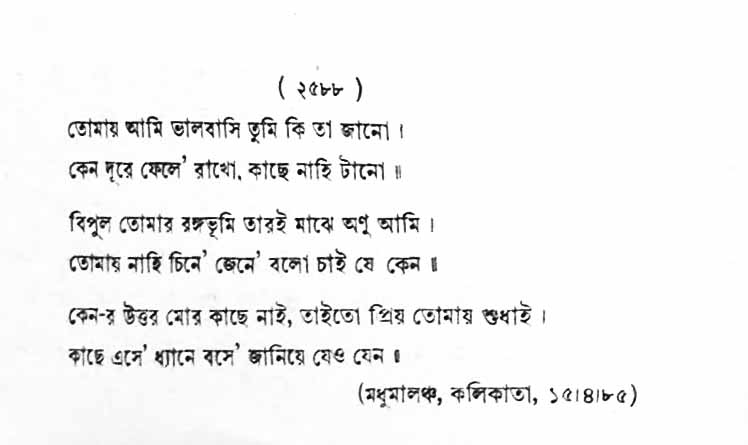 ( ২৫৮৮ )
তোমায় আমি ভালবাসি তুমি কি তা জানো ।
কেন দূরে ফেলে' রাখো, কাছে নাহি টানো ॥
বিপুল তোমার রঙ্গভূমি তারই মাঝে অণু আমি ।
তোমায় নাহি চিনে' জেনে' বলো চাই যে কেন ॥
কেন-র উত্তর মোর কাছে নাই, তাইতো প্রিয় তোমায় শুধাই ।
কাছে এসে' ধ্যানে বসে' জানিয়ে যেও যেন ॥
(মধুমালঞ্চ, কলিকাতা, ১৫।৪।৮৫)